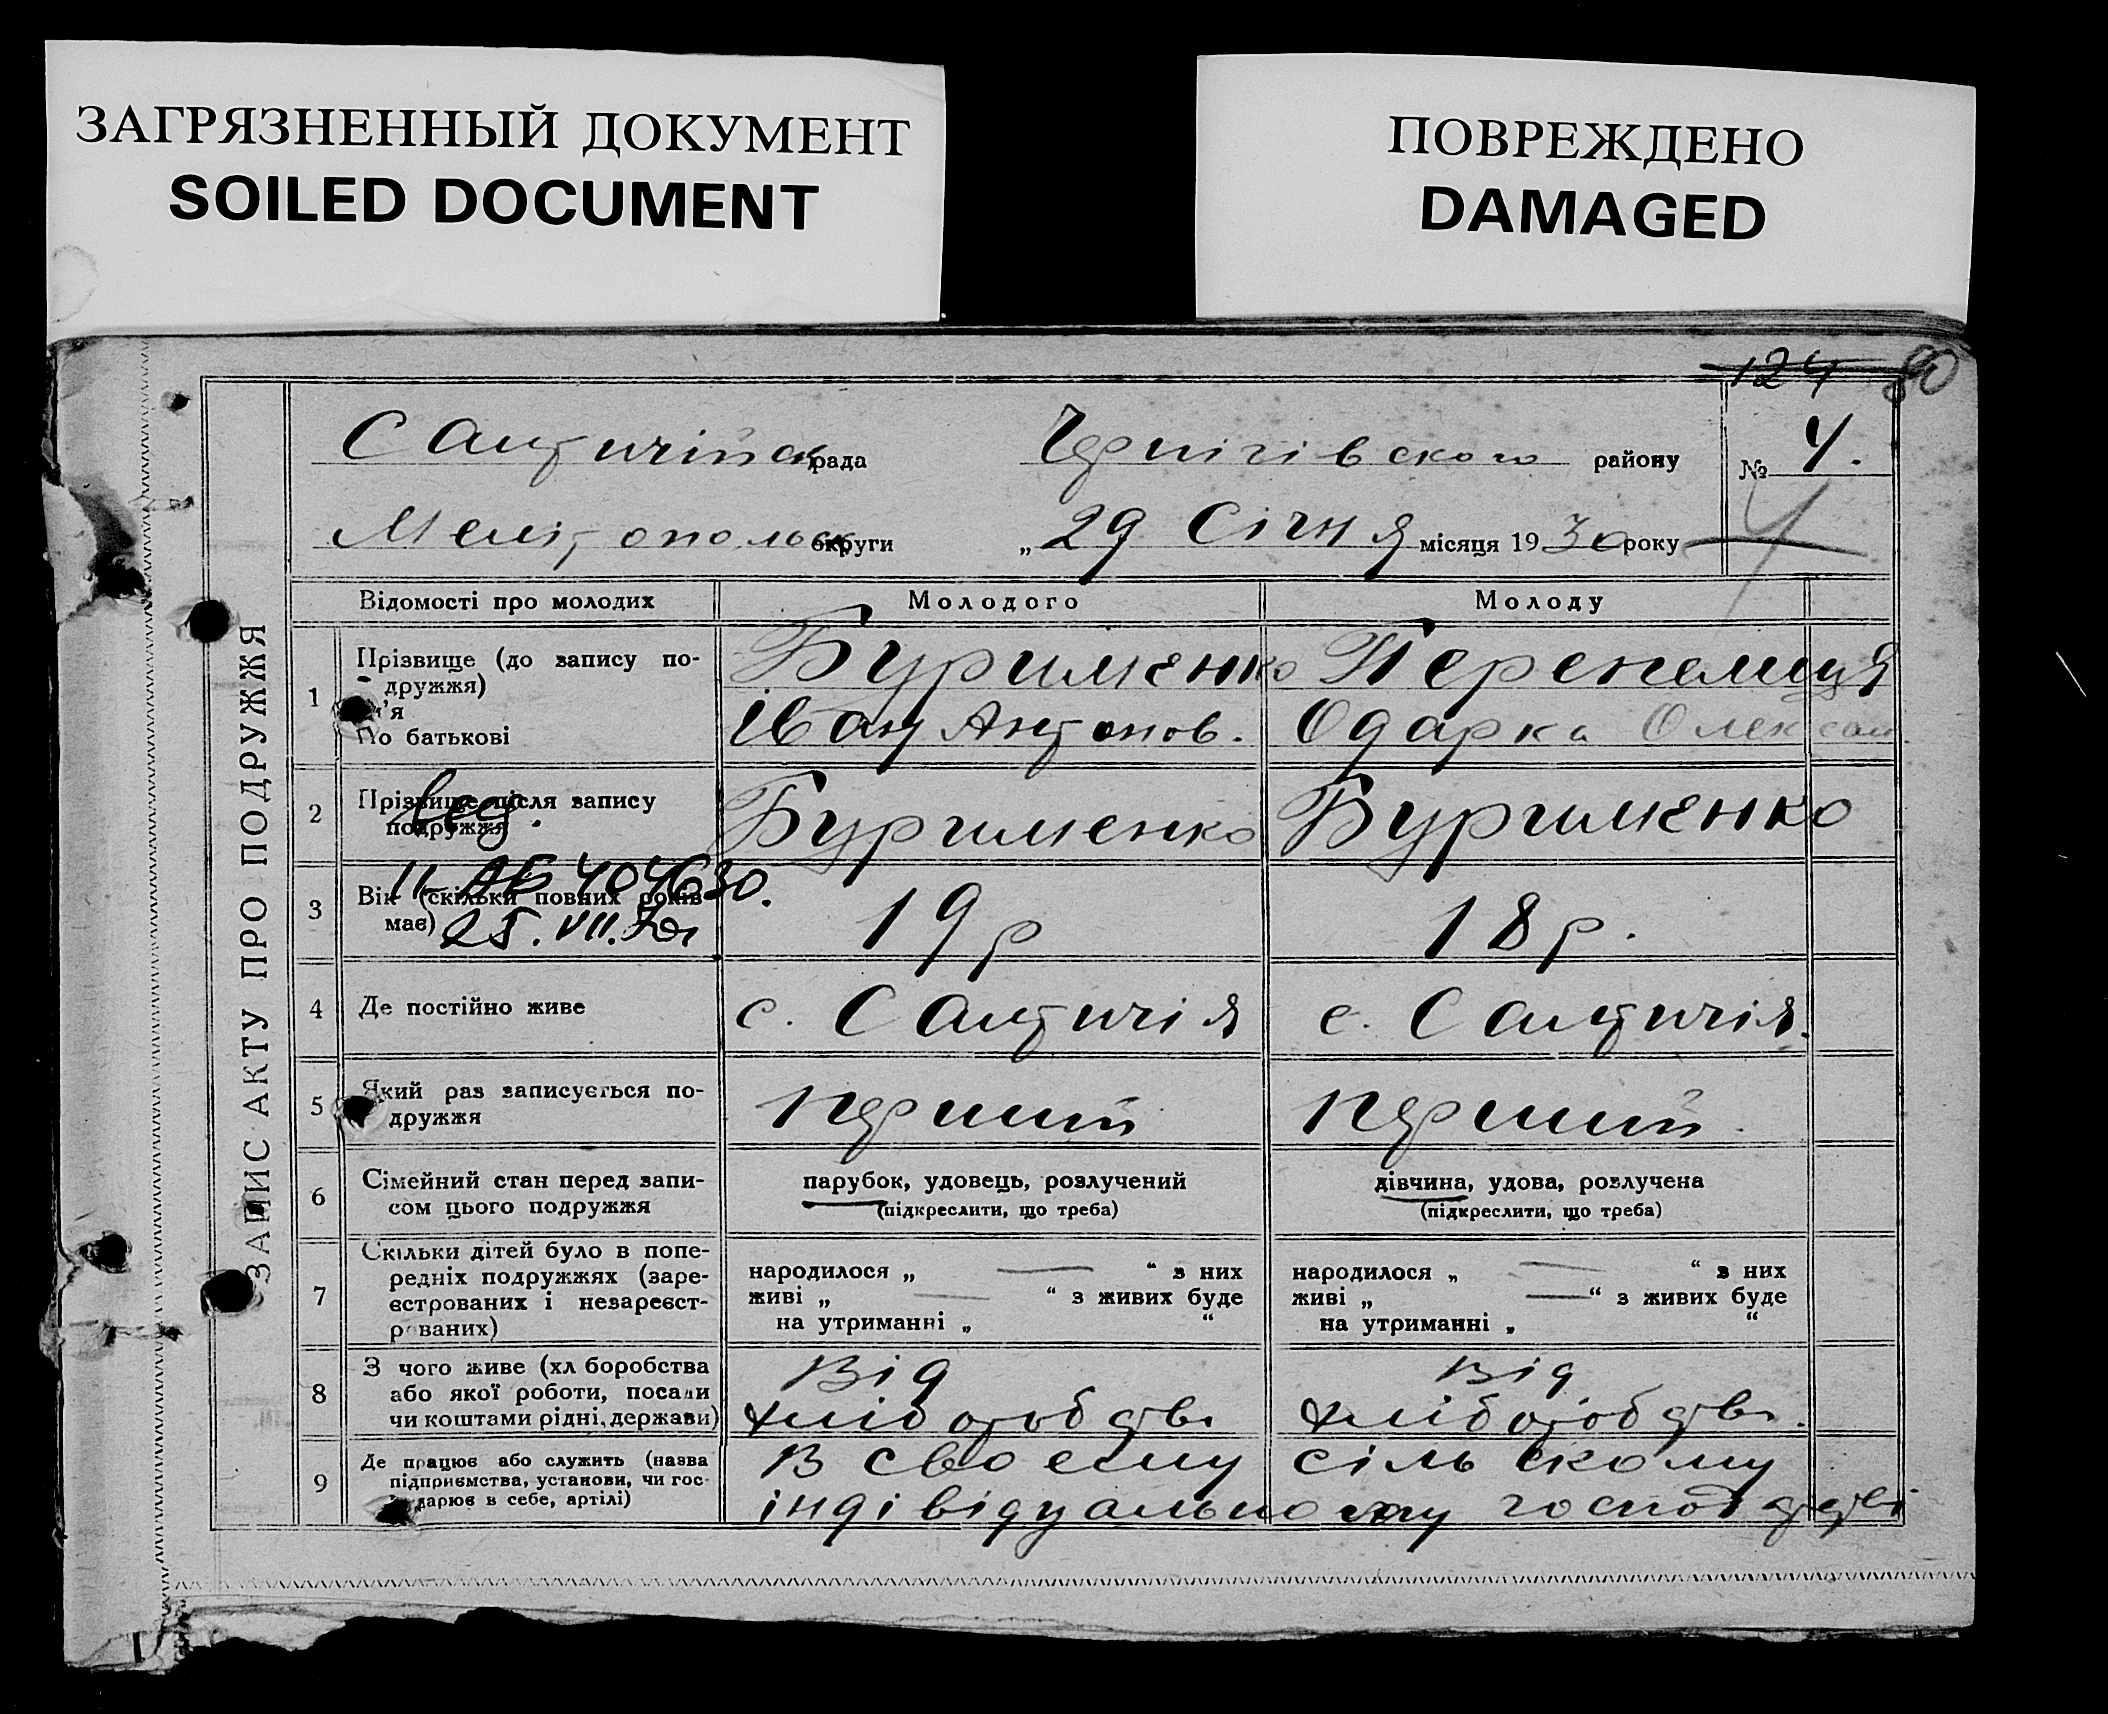 ЗАГРЯЗНЕННЫЙ ДОКУМЕНТ
SOILED DOCUMENT
ПОВРЕЖДЕНО
DAMAGED
124 90
Салтичійськ рада Чернігівського району № 4.
Мелітопольськ округи „ 29 Січня місяця 1930 року 4
ЗАПИС АКТУ ПРО ПОДРУЖЖЯ
Відомості про молодих Молодого Молоду
1 Прізвище (до запису по- Буримѣнко Перепелиця
дружжя)
м'я Іван Антонов. Одарка Олексан
По батькові
2 Прізвище після запису Буріменко Буріменко
подружжя
II-АБ 404630.
3 Вік (скільки повних років 19 р 18 р.
має) 25.VII.
4 Де постійно живе с. Салтичія с. Салтичія.
5 Який раз записується по- перший перший
дружжя
6 Сімейний стан перед запи- парубок, удовець, розлучений дівчина, удова, розлучена
сом цього подружжя (підкреслити, що треба) (підкреслити, що треба)
7 Скільки дітей було в попе-
редніх подружжях (заре- народилося „ — “ з них народилося „ — “ з них
єстрованих і незареєст- живі „ — “ з живих буде живі „ — “ з живих буде
рованих) на утриманні „ “ на утриманні „ “
8 З чого живе (хл боробства Від Від
або якої роботи, посади
чи коштами рідні, держави) хліборобств. хліборобств.
9 Де працює або служить (назва В своєму сільському
підприємства, установи, чи гос-
дарює в себе, артілі) індівідуальному господарстві